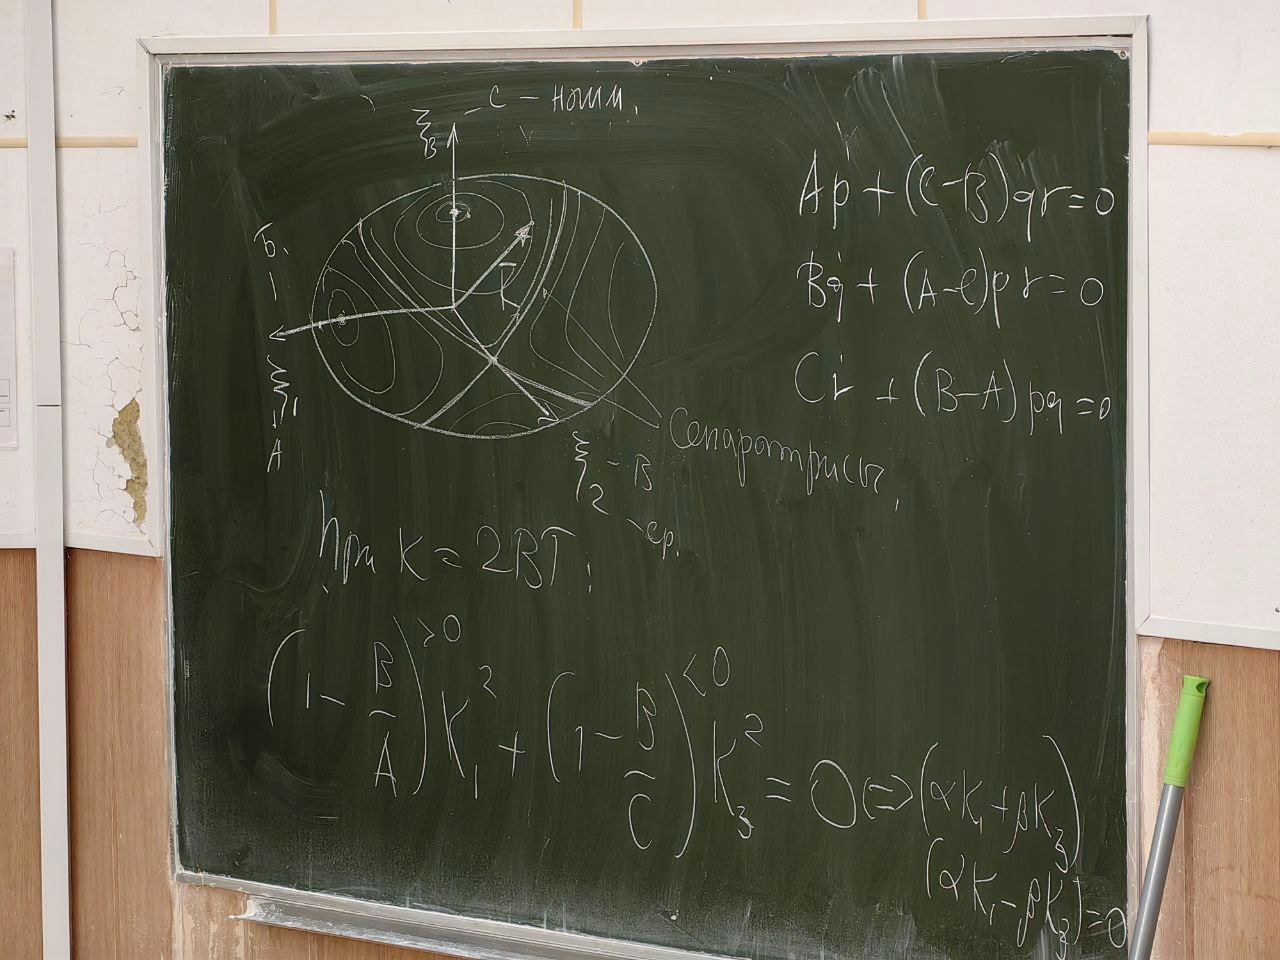 ξ₃ – C – наим.
Б.
ξ₁
A
K̄
ξ₂ – B
– ср.
Сепаратрисы
Aṗ + (C–B)qr = 0
Bq̇ + (A–C)pr = 0
Cṙ + (B–A)pq = 0
При K = 2BT:
(1 – B/A)^{>0} K₁² + (1 – B/C)^{<0} K₃² = 0 ⇔ (αK₁ + βK₃)
(αK₁ – βK₃) = 0